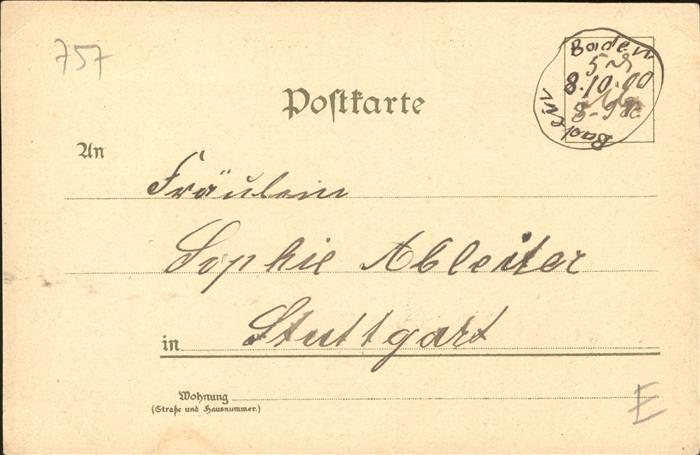 757
Baden
8.10.00
Baden
Postkarte
An
Fräulein
Sophie Ableiter
in Stuttgart
Wohnung
(Straße und Hausnummer.)
E